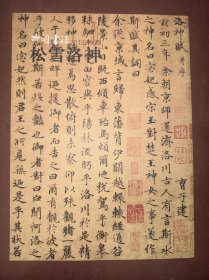 洛神賦 并序
曹子建
初三年余朝京師還濟洛川古人有言斯水
之神名曰宓妃感宋玉對楚王神女之事遂作
斯賦其詞曰
余從京域言歸東藩背伊闕越轘轅經通谷
陵景山日既西傾車殆馬煩爾稅駕乎蘅皋
田容與乎陽林流眄乎洛川於是精
移神思散俯則未察仰以殊觀睹一麗
援御者而告之曰爾有覿於彼者
斯若此之豔也御者對曰臣聞河洛之
神名曰宓妃然則君王之所見無迺是乎其狀若
松雪洛神